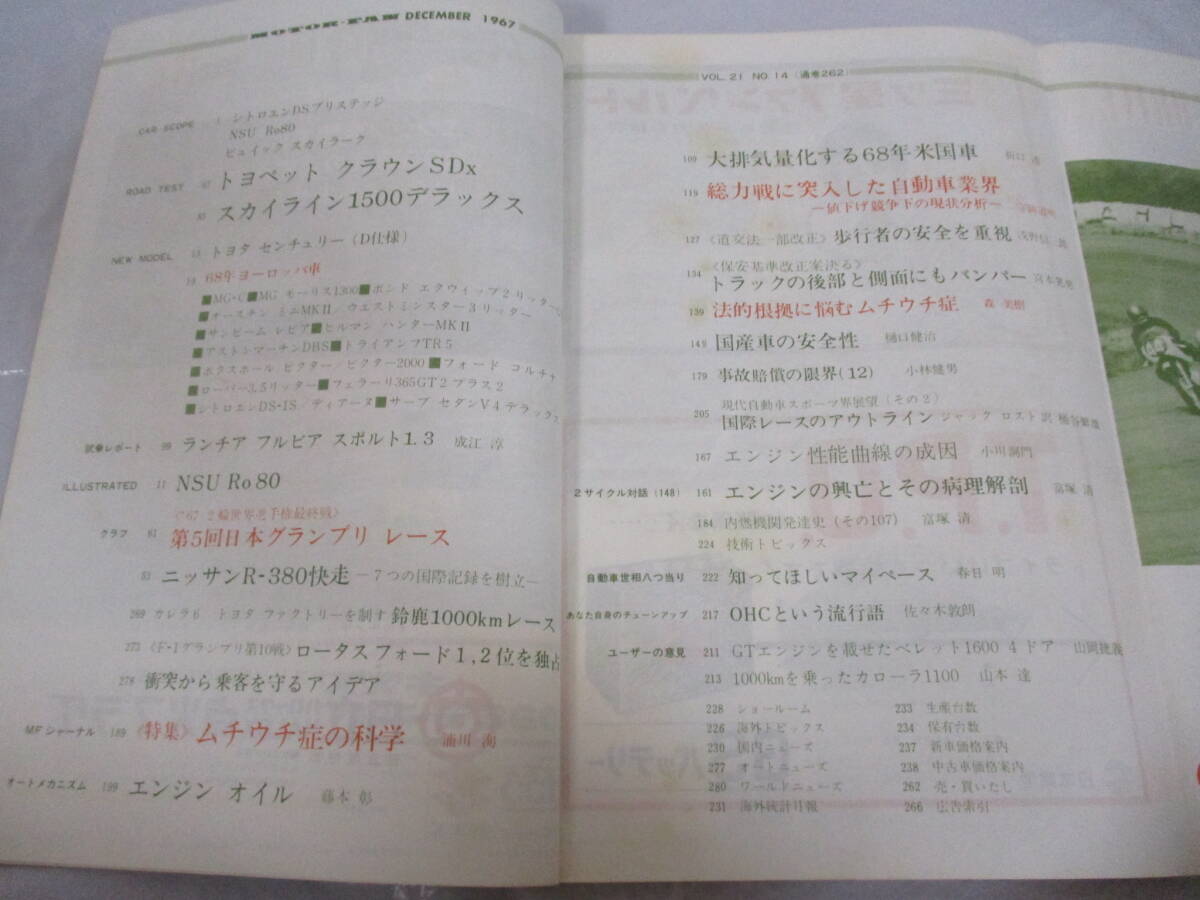 MOTOR-FAN DECEMBER 1967
CAR SCOPE 1 シトロエンDSプリステッジ
NSU Ro80
ビュイック スカイラーク
ROAD TEST 67 トヨペット クラウンSDx
85 スカイライン1500デラックス
NEW MODEL 15 トヨタ センチュリー(D仕様)
19 68年ヨーロッパ車
■MG・C■MG モーリス1300■ボンド エクウィップ2リッター
■オースチン ミニMKⅡ/ウエストミンスター3リッター
■サンビーム レピア■ヒルマン ハンターMKⅡ
■アストンマーチンDBS■トライアンフTR5
■ボクスホール ビクター/ビクター2000■フォード コルチナ
■ローバー3.5リッター■フェラーリ365GT2プラス2
■シトロエンDS・IS/ディアーヌ■サーブ セダンV4デラックス
試乗レポート 99 ランチア フルビア スポルト1.3 成江 淳
ILLUSTRATED 11 NSU Ro80
〈'67 2輪世界選手権最終戦〉
グラフ 61 第5回日本グランプリ レース
53 ニッサンR-380快走 —7つの国際記録を樹立—
269 カレラ6 トヨタ ファクトリーを制す 鈴鹿1000kmレース
273 〈F・Iグランプリ第10戦〉ロータスフォード1,2位を独占
278 衝突から乗客を守るアイデア
MFジャーナル 189 《特集》ムチウチ症の科学 浦川 洵
オートメカニズム 199 エンジン オイル 藤本 彰
VOL. 21 NO 14 (通巻262)
109 大排気量化する68年米国車
119 総力戦に突入した自動車業界
—値下げ競争下の現状分析—
127 〈道交法一部改正〉歩行者の安全を重視
《保安基準改正案決る》
134 トラックの後部と側面にもバンパー
139 法的根拠に悩むムチウチ症 森 美樹
149 国産車の安全性 樋口健治
179 事故賠償の限界(12) 小林健男
現代自動車スポーツ界展望(その2)
205 国際レースのアウトライン ジャック ロスト 訳
167 エンジン性能曲線の成因
2サイクル対話(148) 161 エンジンの興亡とその病理解剖 富塚 清
184 内燃機関発達史(その107) 富塚 清
224 技術トピックス
自動車世相八つ当り 222 知ってほしいマイペース 春日 明
あなた自身のチューンアップ 217 OHCという流行語 佐々木敦朗
ユーザーの意見 211 GTエンジンを載せたベレット1600 4ドア 山岡捷義
213 1000kmを乗ったカローラ1100 山本 達
228 ショールーム 233 生産台数
226 海外トピックス 234 保有台数
230 国内ニューズ 237 新車価格案内
277 オートニューズ 238 中古車価格案内
280 ワールドニューズ 262 売・買いたし
231 海外統計月報 266 広告索引